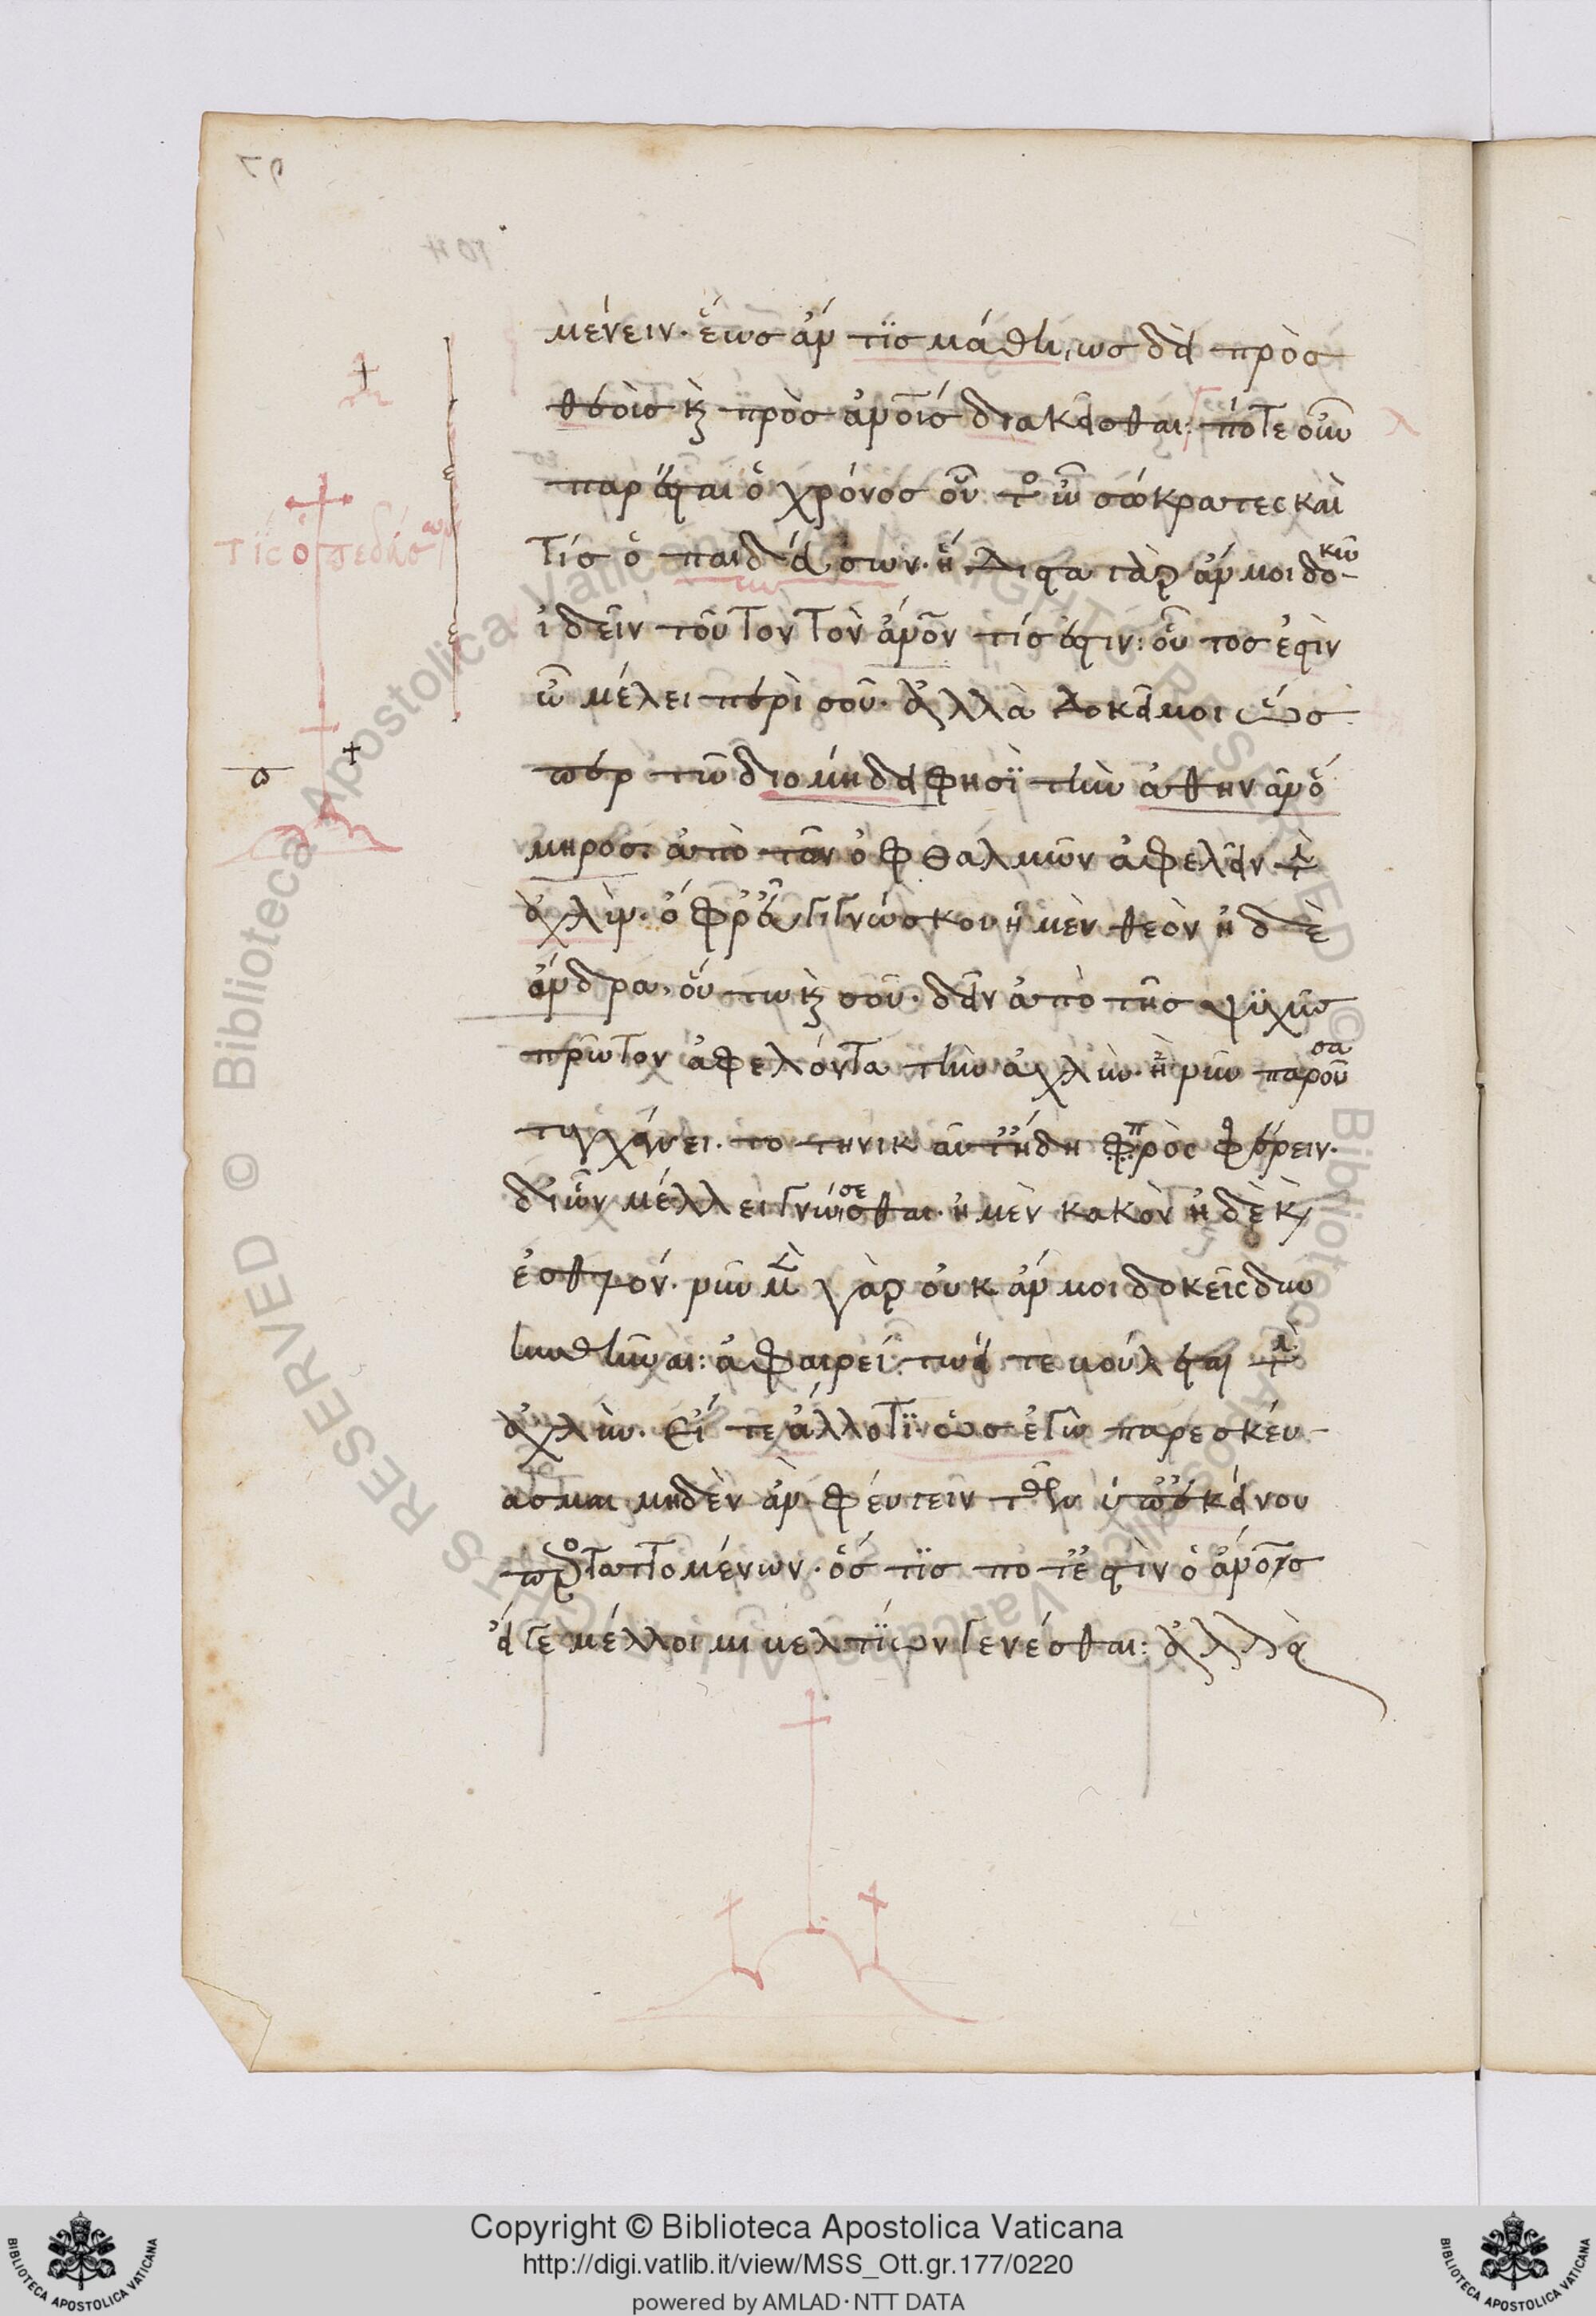 μένειν· ἕως ἄν τϊς μάθῃ, ὡς δεῖ πρὸς
θεοὺς κ πρὸς ἀνους διακεῖσθαι: πότε οὖν
παρέσται ὁ χρόνος οὗτος ὦ σώκρατες καὶ
τίς ὁ παιδεύσων· ἥδιστα γὰρ ἄν μοι δοκῶ
ἰδεῖν τοῦτον τὸν ἄνον τίς ἐστιν: οὗτος ἐστὶν
ὧ μέλει περὶ σοῦ· ἀλλὰ δοκεῖ μοι ὥσ
περ τῶ διομήδει φησϊ τὴν ἀθηνᾶν ὅ
μηρος ἀπὸ τῶν ὀφθαλμῶν ἀφελεῖν τὴν
ἀχλὺν· ὄφρ' εὖ γιγνώσκοι ἠμὲν θεὸν ἠδὲ
ἄνδρα, οὕτω κ σοῦ· δεῖν ἀπὸ τῆς ψϋχῆς
πρῶτον ἀφελόντα τὴν ἀχλὺν· ἣ νῦν παροῦσα
τυγχάνει· τοτηνικαῦτ' ἤδη προσφέρειν·
δι' ὧν μέλλει γνώσεσθαι· ἠμὲν κακὸν ἠδὲ κ
ἐσθλόν· νῦν μὲν γὰρ οὐκ ἄν μοι δοκεῖς δυ
νηθῆναι: ἀφαιρείτω εἴτε βούλεται τὴν
ἀχλὺν· εἴτε ἄλλο τϊ· ὡς ἐγὼ παρεσκεύ-
ασμαι μηδὲν ἂν φεύγειν τῶν ὑπ' ἐκείνου
προσταττομένων· ὅστϊς ποτ' ἐστὶν ὁ ἄνος
εἴγε μέλλοιμι βελτϊων γενέσθαι: ἀλλὰ
τίς ὁ πεδεύσων
Copyright © Biblioteca Apostolica Vaticana
http://digi.vatlib.it/view/MSS_Ott.gr.177/0220
powered by AMLAD·NTT DATA